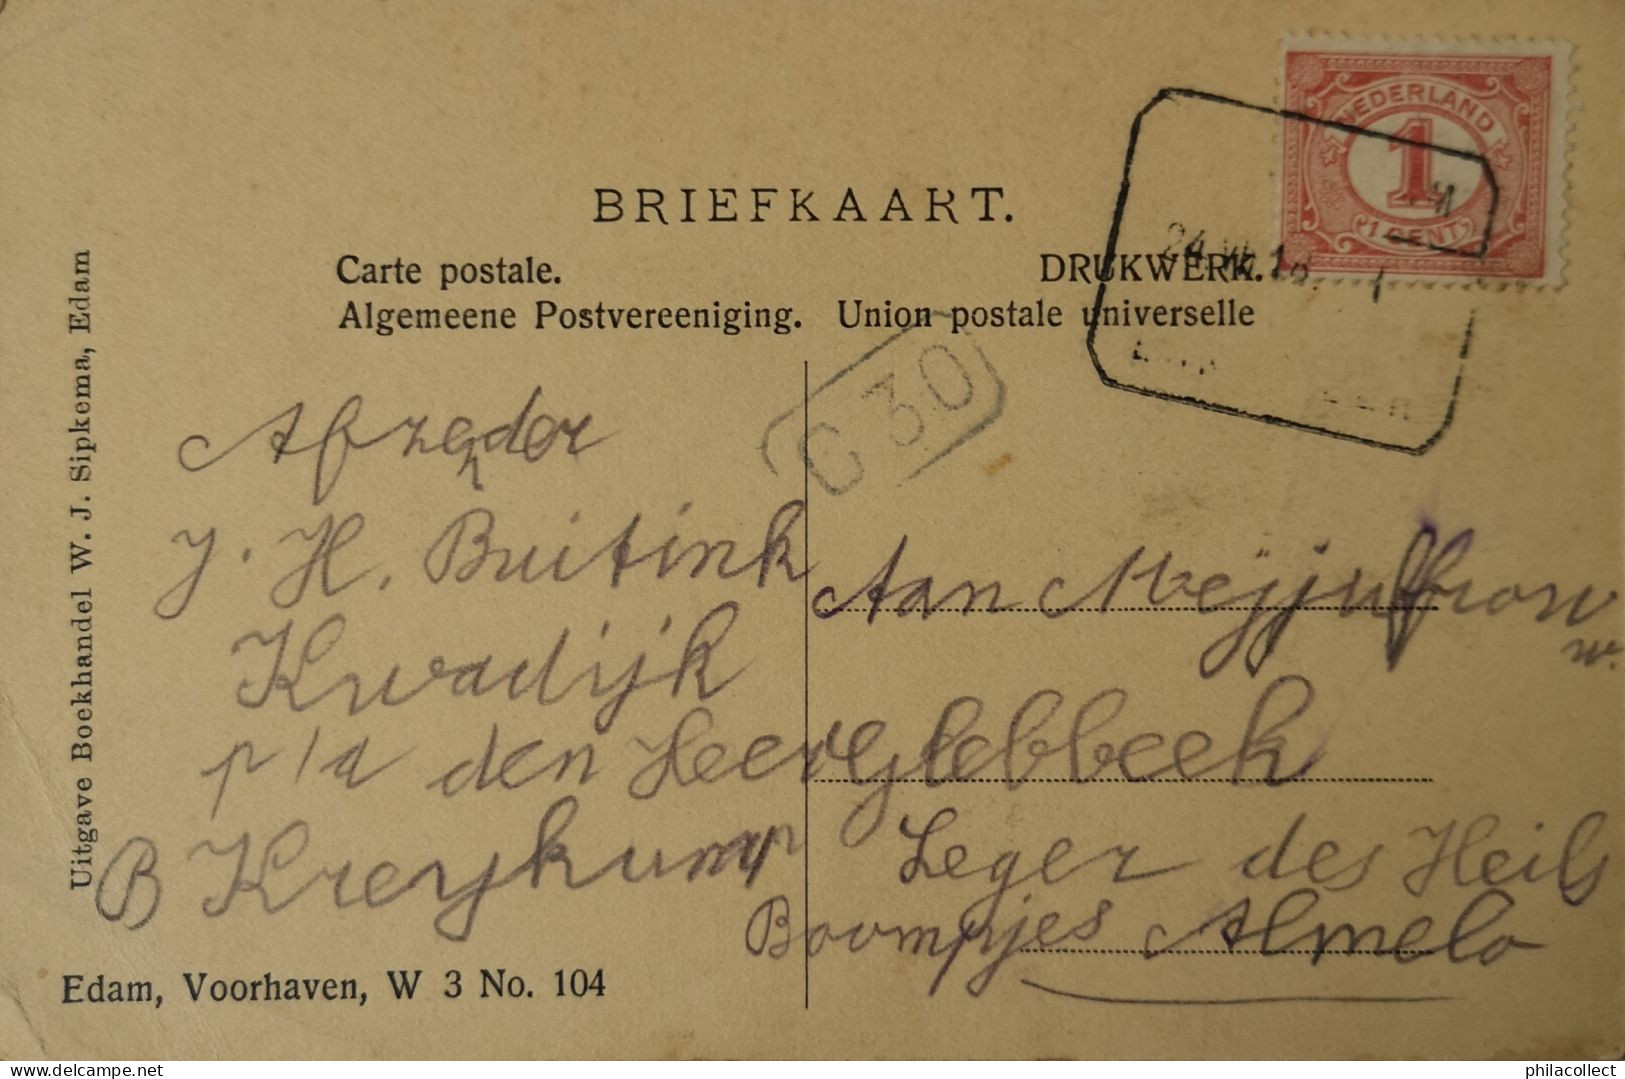 BRIEFKAART.
Carte postale. DRUKWERK.
Algemeene Postvereeniging. Union postale universelle
Uitgave Boekhandel W. J. Sipkema, Edam
NEDERLAND
1
1 CENT
24.VII.18.
C 30
Afzender
J. H. Buitink
Kwadijk
p/a den Heer
B Kreykump
Aan Mejjuffrouw
w.
Glebbeek
Leger des Heils
Boompjes Almelo
Edam, Voorhaven, W 3 No. 104
philacollect